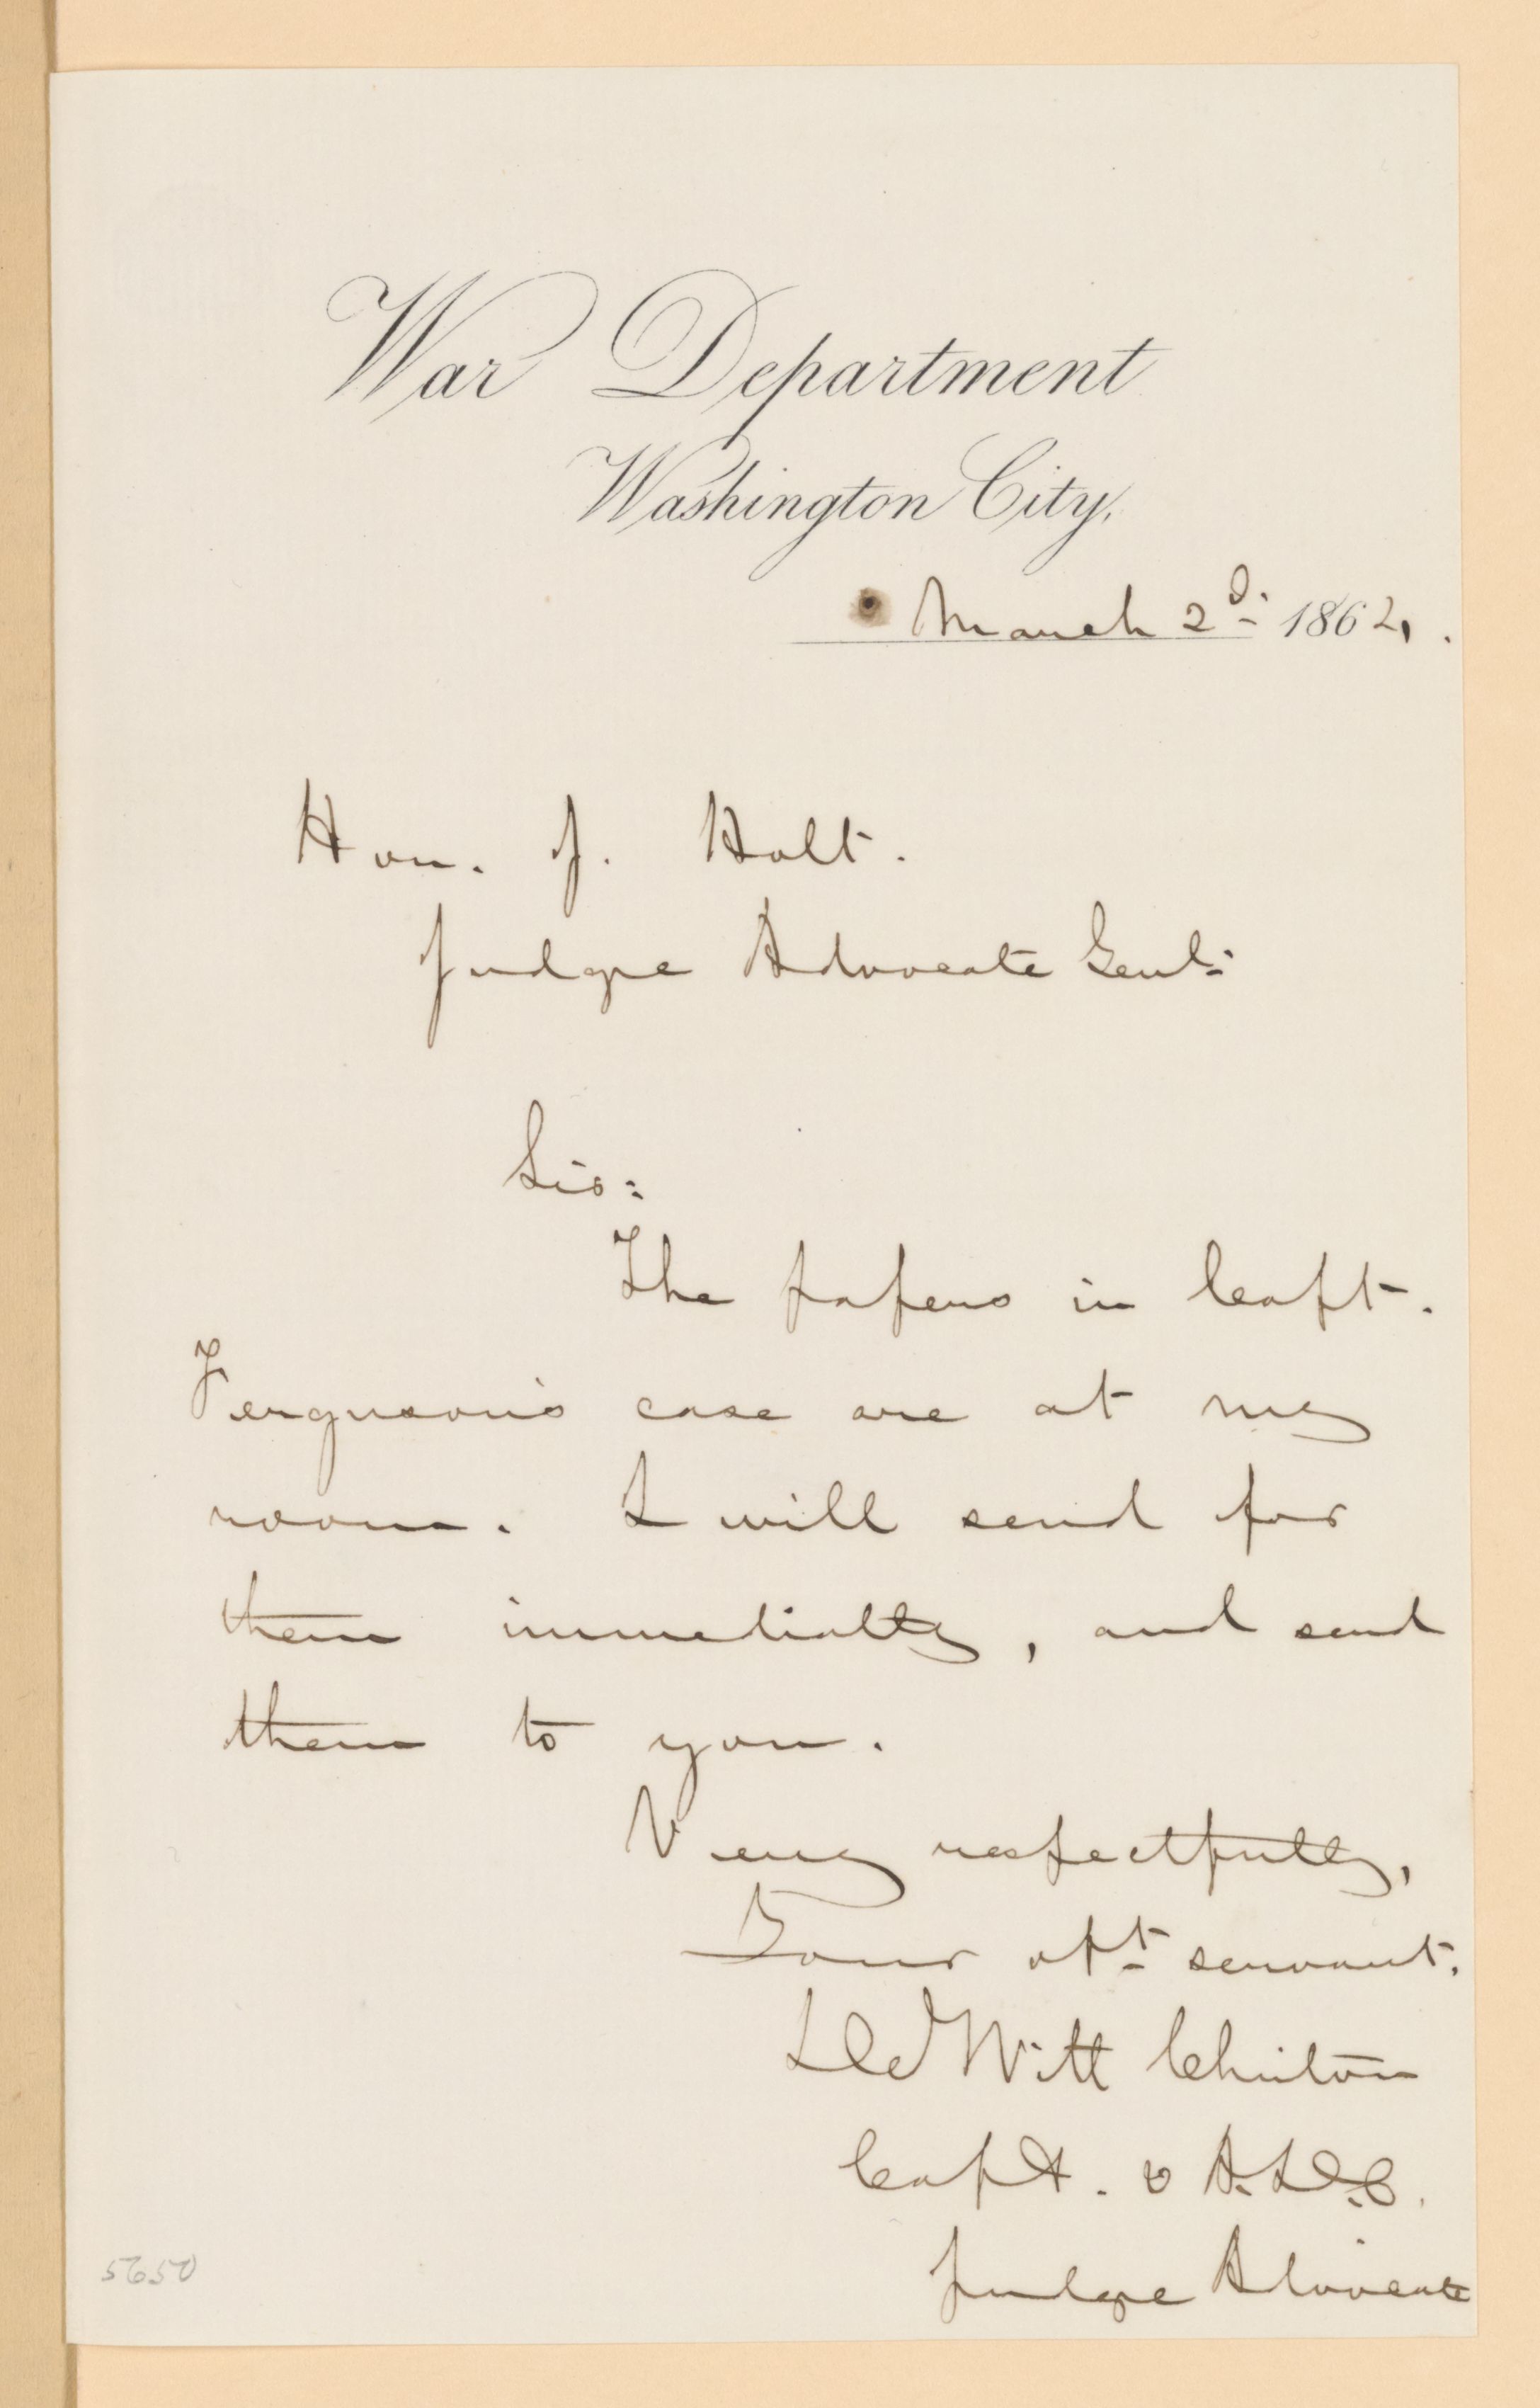 War Department
Washington City,
March 2d. 1862.
Hon. J. Holt.
Judge Advocate Genl.
Sir:
The papers in Capt.
Ferguson's case are at my
room. I will send for
them immediatly, and send
them to you.
Very respectfully,
Your obt. servant.
DeWitt Clinton
Capt. & A.D.C.
Judge Advocate
5650